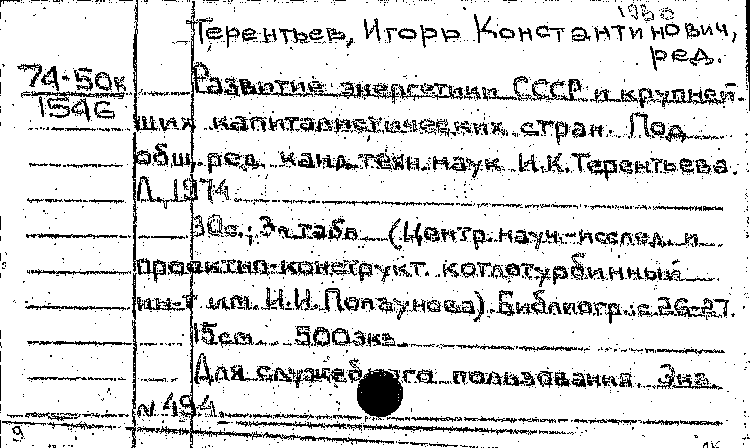 1930
Терентьев, Игорь Константинович,
ред.
74-50к
1546
Развитие энергетики СССР и крупней-
ших капиталистических стран. Под
общ. ред. канд. техн. наук И.К. Терентьева.
Л., 1974.
30с.; 3л. табл. (Центр. науч.-исслед. и
проектно-конструкт. котлотурбинный
ин-т им. И.И. Ползунова). Библиогр.: с 26-27.
15см. 500экз.
Для служебного пользования. Экз.
№ 494.
9